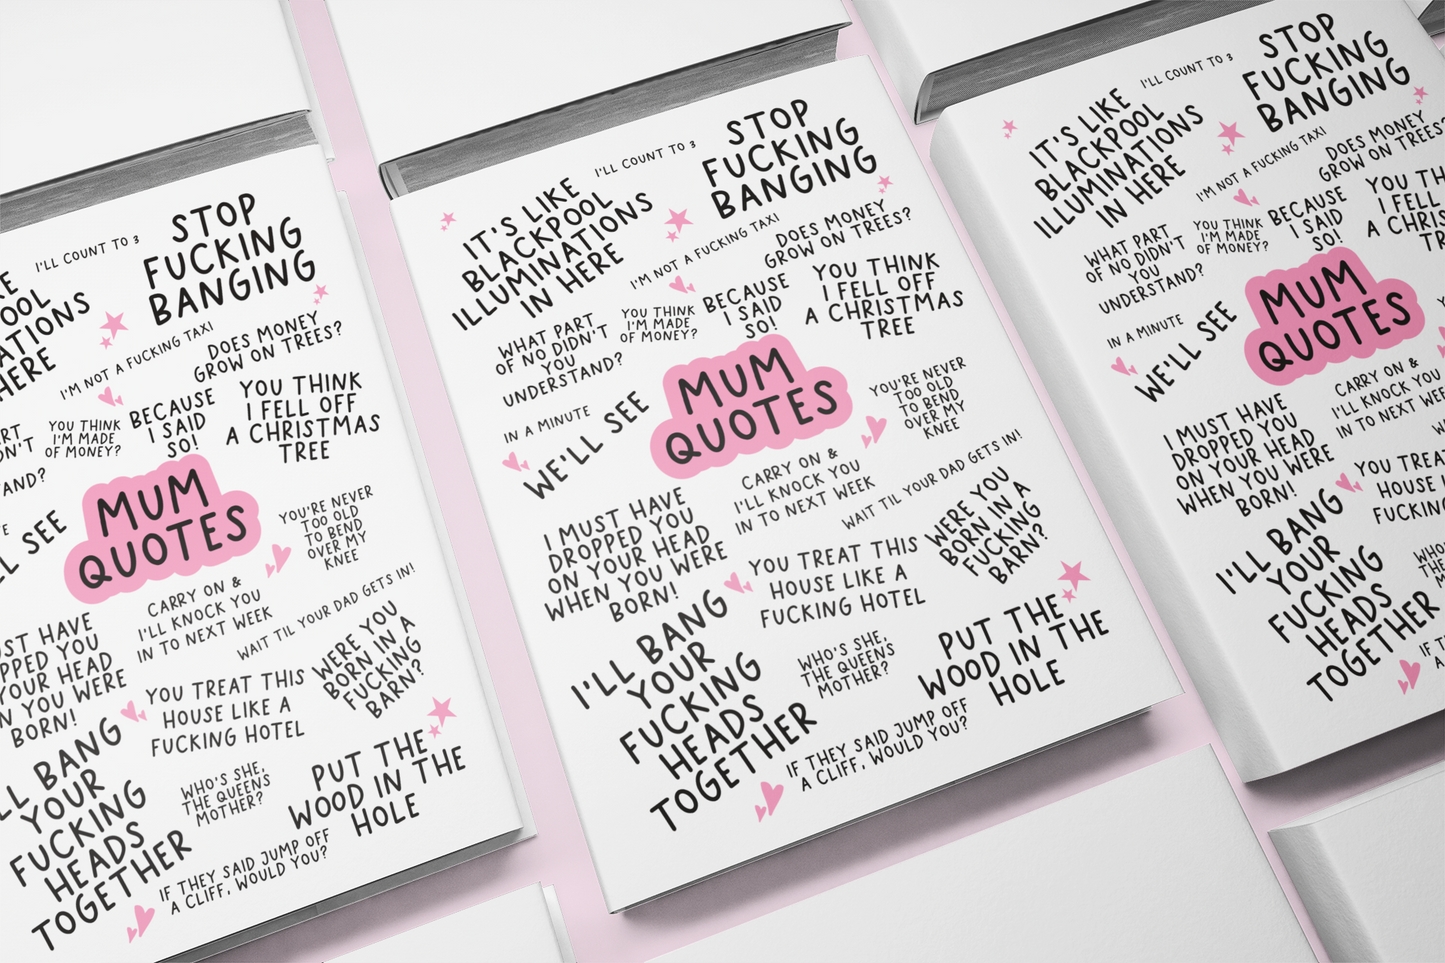 I'LL COUNT TO 3
STOP
FUCKING
BANGING
HERE
I'M NOT A FUCKING TAXI
DOES MONEY
GROW ON TREES?
YOU THINK
I'M MADE
OF MONEY?
BECAUSE
I SAID
SO!
YOU THINK
I FELL OFF
A CHRISTMAS
TREE
MUM
QUOTES
SEE
YOU'RE NEVER
TOO OLD
TO BEND
OVER MY
KNEE
CARRY ON &
I'LL KNOCK YOU
IN TO NEXT WEEK
WAIT TIL YOUR DAD GETS IN!
HAVE
YOU
YOUR HEAD
YOU WERE
BORN!
YOU TREAT THIS
HOUSE LIKE A
FUCKING HOTEL
WERE YOU
BORN IN A
FUCKING
BARN?
BANG
YOUR
FUCKING
HEADS
TOGETHER
WHO'S SHE,
THE QUEENS
MOTHER?
PUT THE
WOOD IN THE
HOLE
IF THEY SAID JUMP OFF
A CLIFF, WOULD YOU?
I'LL COUNT TO 3
STOP
FUCKING
BANGING
IT'S LIKE
BLACKPOOL
ILLUMINATIONS
IN HERE
I'M NOT A FUCKING TAXI
DOES MONEY
GROW ON TREES?
WHAT PART
OF NO DIDN'T
YOU
UNDERSTAND?
YOU THINK
I'M MADE
OF MONEY?
BECAUSE
I SAID
SO!
YOU THINK
I FELL OFF
A CHRISTMAS
TREE
IN A MINUTE
WE'LL SEE
MUM
QUOTES
YOU'RE NEVER
TOO OLD
TO BEND
OVER MY
KNEE
CARRY ON &
I'LL KNOCK YOU
IN TO NEXT WEEK
WAIT TIL YOUR DAD GETS IN!
I MUST HAVE
DROPPED YOU
ON YOUR HEAD
WHEN YOU WERE
BORN!
YOU TREAT THIS
HOUSE LIKE A
FUCKING HOTEL
WERE YOU
BORN IN A
FUCKING
BARN?
I'LL BANG
YOUR
FUCKING
HEADS
TOGETHER
WHO'S SHE,
THE QUEENS
MOTHER?
PUT THE
WOOD IN THE
HOLE
IF THEY SAID JUMP OFF
A CLIFF, WOULD YOU?
I'LL COUNT TO 3
STOP
FUCKING
BANGING
IT'S LIKE
BLACKPOOL
ILLUMINATIONS
IN HERE
I'M NOT A FUCKING TAXI
DOES MONEY
GROW ON TREES
WHAT PART
OF NO DIDN'T
YOU
UNDERSTAND?
YOU THINK
I'M MADE
OF MONEY?
BECAUSE
I SAID
SO!
YOU TH
I FELL
A CHRIS
TR
IN A MINUTE
WE'LL SEE
MUM
QUOTES
CARRY ON &
I'LL KNOCK YOU
IN TO NEXT WEEK
I MUST HAVE
DROPPED YOU
ON YOUR HEAD
WHEN YOU WERE
BORN!
YOU TREAT
HOUSE
FUCKING
I'LL BANG
YOUR
FUCKING
HEADS
TOGETHER